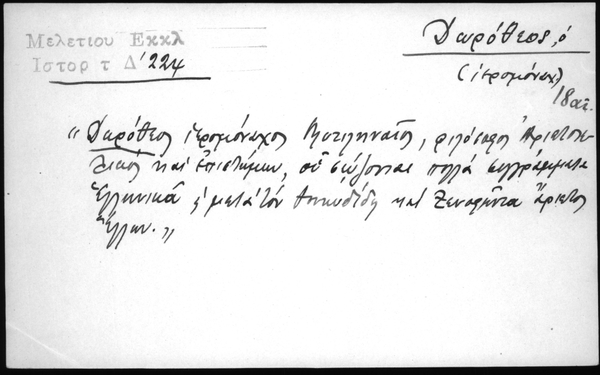 Μελετίου Εκκλ
Ιστορ τ Δ' 224
Δωρόθεος, ὁ
(ἱερομόναχ)
18 αἰ.
" Δωρόθεος ἱερομόναχος Μυτιληναῖος, φιλόσοφος Ἀριστοτε-
λικός καί ἐπιστήμων, οὗ σώζονται πολλά συγγράμματα
Ἑλληνικά μετά τόν Θουκυδίδη καί Ξενοφῶντα ἄριστος
Ἕλλην. "